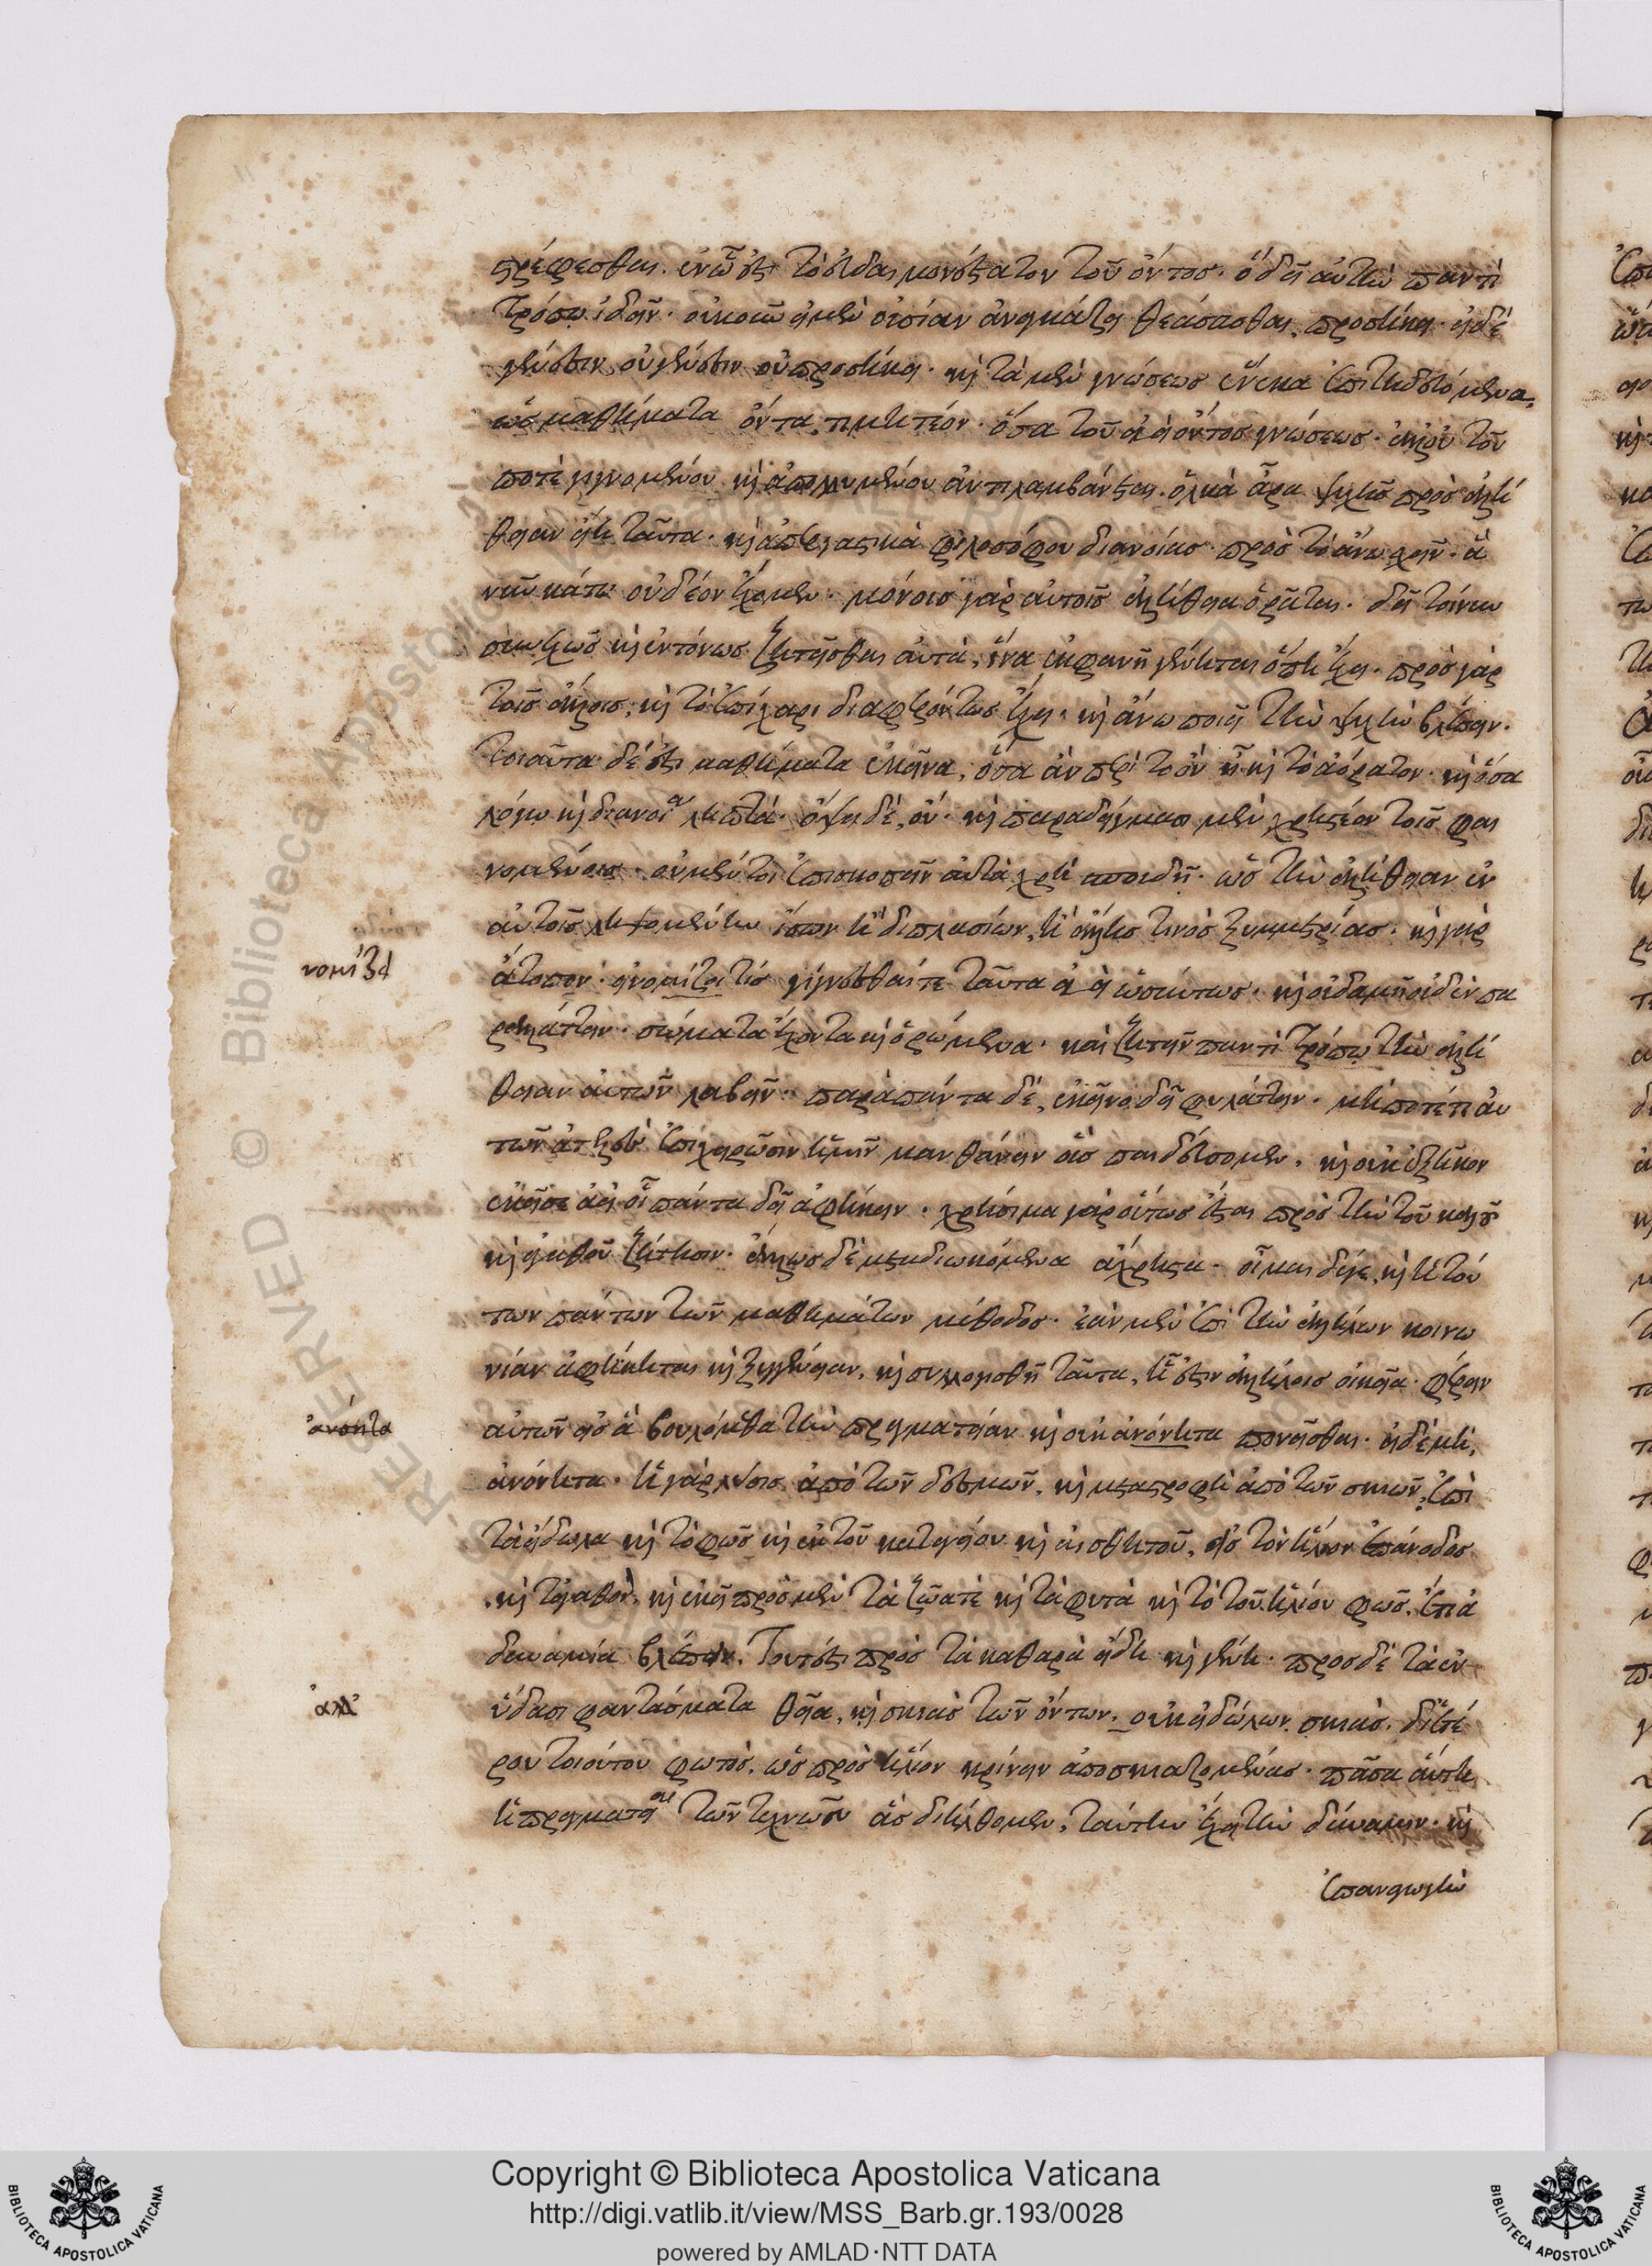 στρέφεσθαι. ἐν ᾧ ἐστι τὸ εὐδαιμονέστατον τοῦ ὄντος. ὃ δεῖ αὐτὴν παντὶ
τρόπῳ ἰδεῖν. οὐκοῦν εἰ μὲν οὐσίαν ἀναγκάζει θεάσασθαι, προσήκει. εἰ δὲ
γένεσιν οὐ γένεσιν οὐ προσήκει. καὶ τὰ μὲν γνώσεως ἕνεκα ἐπιτηδευόμενα,
ὡς μαθήματα ὄντα, τιμητέον. ὅσα τοῦ ἀεὶ ὄντος γνώσεως. ἀλλ' οὐ τοῦ
ποτὲ γιγνομένου καὶ ἀπολλυμένου ἀντιλαμβάνεται. ὁλκὰ ἄρα ψυχῆς πρὸς ἀλή
θειαν εἴη ταῦτα. καὶ ἀπεργαστικὰ φιλοσόφου διανοίας. πρὸς τὸ ἄνω σχεῖν. ἃ
νῦν κάτω οὐ δέον ἔχομεν. μόνοις γὰρ αὐτοῖς ἀλήθεια ὁρᾶται. δεῖ τοίνυν
συνεχῶς καὶ ἐντόνως ζητεῖσθαι αὐτὰ, ἵνα ἐκφανῆ γένηται ὅπη ἔχει. πρὸς γὰρ
τοῖς ἄλλοις, καὶ τὸ ἐπίχαρι διαφερόντως ἔχει. καὶ ἄνω ποιεῖ τὴν ψυχὴν βλέπειν.
τοιαῦτα δέ ἐστι μαθήματα ἐκεῖνα, ὅσα ἂν περὶ τὸ ὂν ᾖ καὶ τὸ ἀόρατον. καὶ ὅσα
λόγῳ καὶ διανοίᾳ ληπτά. ὄψει δὲ, οὔ. καὶ παραδείγμασι μὲν χρηστέον τοῖς φαι
νομένοις. οὐ μέντοι ἐπισκοπεῖν αὐτὰ χρὴ σπουδῇ. ὡς τὴν ἀλήθειαν ἐν
αὐτοῖς ληψομένων ἴσων ἢ διπλασίων, ἢ ἄλλης τινὸς ξυμμετρίας. καὶ γὰρ
ἄτοπον. εἰ νομίζοι τις γίγνεσθαί τε ταῦτα ἀεὶ ὡσαύτως. καὶ οὐδαμῇ οὐδὲν πα
ραλλάττειν. σώματα ἔχοντα καὶ ὁρώμενα. καὶ ζητεῖν παντὶ τρόπῳ τὴν ἀλή
θειαν αὐτῶν λαβεῖν. παρὰ πάντα δὲ, ἐκεῖνο δεῖ φυλάττειν. μή ποτέ τι αὐ
τῶν ἀτελὲς ἐπιχειρῶσιν ἡμῖν μανθάνειν οὓς παιδεύσομεν. καὶ οὐκ ἐξῆκον
ἐκεῖσε ἀεὶ οἷ πάντα δεῖ ἀφήκειν. χρήσιμα γὰρ οὕτως ἔσται πρὸς τὴν τοῦ καλοῦ
καὶ ἀγαθοῦ ζήτησιν. ἄλλως δὲ μεταδιωκόμενα ἄχρηστα. οἶμαι δέ γε, καὶ ἡ τού
των πάντων τῶν μαθημάτων μέθοδος. ἐὰν μὲν ἐπὶ τὴν ἀλλήλων κοινω
νίαν ἀφίκηται καὶ ξυγγένειαν, καὶ συλλογισθῇ ταῦτα, ᾗ ἐστιν ἀλλήλοις οἰκεῖα. φέρειν
αὐτῶν εἰς ἃ βουλόμεθα τὴν πραγματείαν καὶ οὐκ ἀνόνητα πονεῖσθαι. εἰ δὲ μὴ,
ἀνόνητα. ἡ γὰρ λύσις ἀπὸ τῶν δεσμῶν. καὶ μεταστροφὴ ἀπὸ τῶν σκιῶν, ἐπὶ
τὰ εἴδωλα καὶ τὸ φῶς καὶ ἐκ τοῦ καταγείου καὶ αἰσθητοῦ, εἰς τὸν ἥλιον ἐπάνοδος
καὶ τἀγαθὸν, καὶ ἐκεῖ πρὸς μὲν τὰ ζῶά τε καὶ τὰ φυτὰ καὶ τὸ τοῦ ἡλίου φῶς. ἔτι ἀ
δυναμία βλέπειν. τουτέστι πρὸς τὰ καθαρὰ εἴδη καὶ γένη. πρὸς δὲ τὰ ἐν
ὕδασι φαντάσματα θεῖα, καὶ σκιὰς τῶν ὄντων, οὐκ εἰδώλων σκιὰς. δι' ἑτέ
ρου τοιούτου φωτὸς. ὡς πρὸς ἥλιον κρίνειν ἀποσκιαζομένας. πᾶσα αὕτη
ἡ πραγματεία τῶν τεχνῶν ἃς διήλθομεν, ταύτην ἔχει τὴν δύναμιν. καὶ
ἐπαναγωγὴν
νομίζει
ἀνόητα
ἀλλ'
Copyright © Biblioteca Apostolica Vaticana
http://digi.vatlib.it/view/MSS_Barb.gr.193/0028
powered by AMLAD·NTT DATA